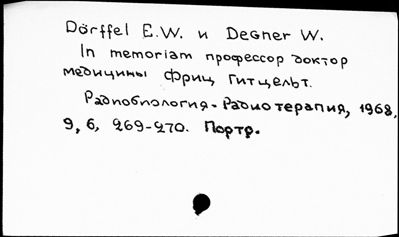 Dörffel E.W. и Degner W.
In memoriam профессор доктор
медицины Фриц Гитцельт.
Радиобиология-Радиотерапия, 1968,
9, 6, 269-270. Портр.